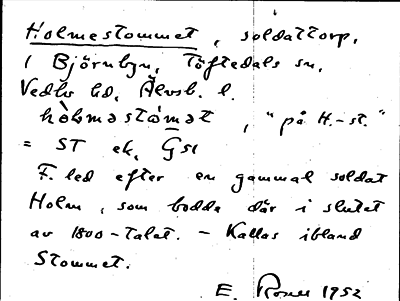 Holmestommet, soldattorp,
i Björnbyn, Töftedals sn,
Vedbo hd, Älvsb. l.
hòlməstómət, "på H.-st."
= ST ek, Gsl
F. led efter en gammal soldat
Holm, som bodde där i slutet
av 1800-talet. - Kallas ibland
Stommet.
E. Rosell 1952